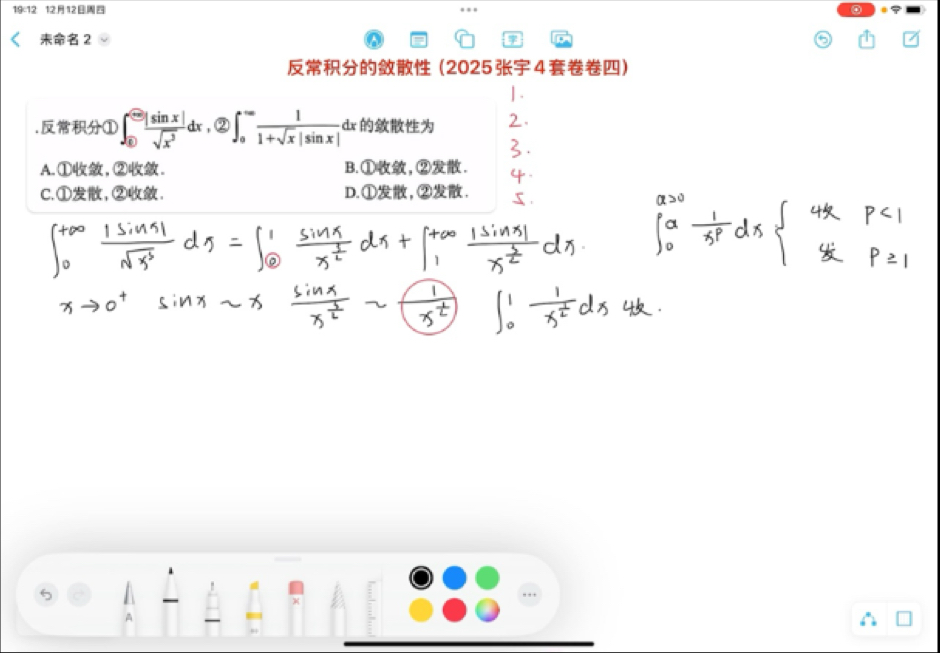 19:12 12月12日周四
未命名 2
反常积分的敛散性 (2025张宇4套卷卷四)
.反常积分①∫₀^{+∞} |sin x|/√x³ dx , ②∫₀^{+∞} 1/(1+√x|sin x|) dx 的敛散性为
A.①收敛,②收敛.
B.①收敛,②发散.
C.①发散,②收敛.
D.①发散,②发散.
1.
2.
3.
4.
5.
∫₀^{+∞} |sinx|/√x³ dx = ∫₀^1 sinx/x^{3/2} dx + ∫₁^{+∞} |sinx|/x^{3/2} dx.
x→0⁺ sinx~x sinx/x^{3/2} ~ 1/x^{1/2} ∫₀^1 1/x^{1/2} dx 收.
a>0
∫₀^a 1/x^p dx { 收 P<1
发 P≥1
A